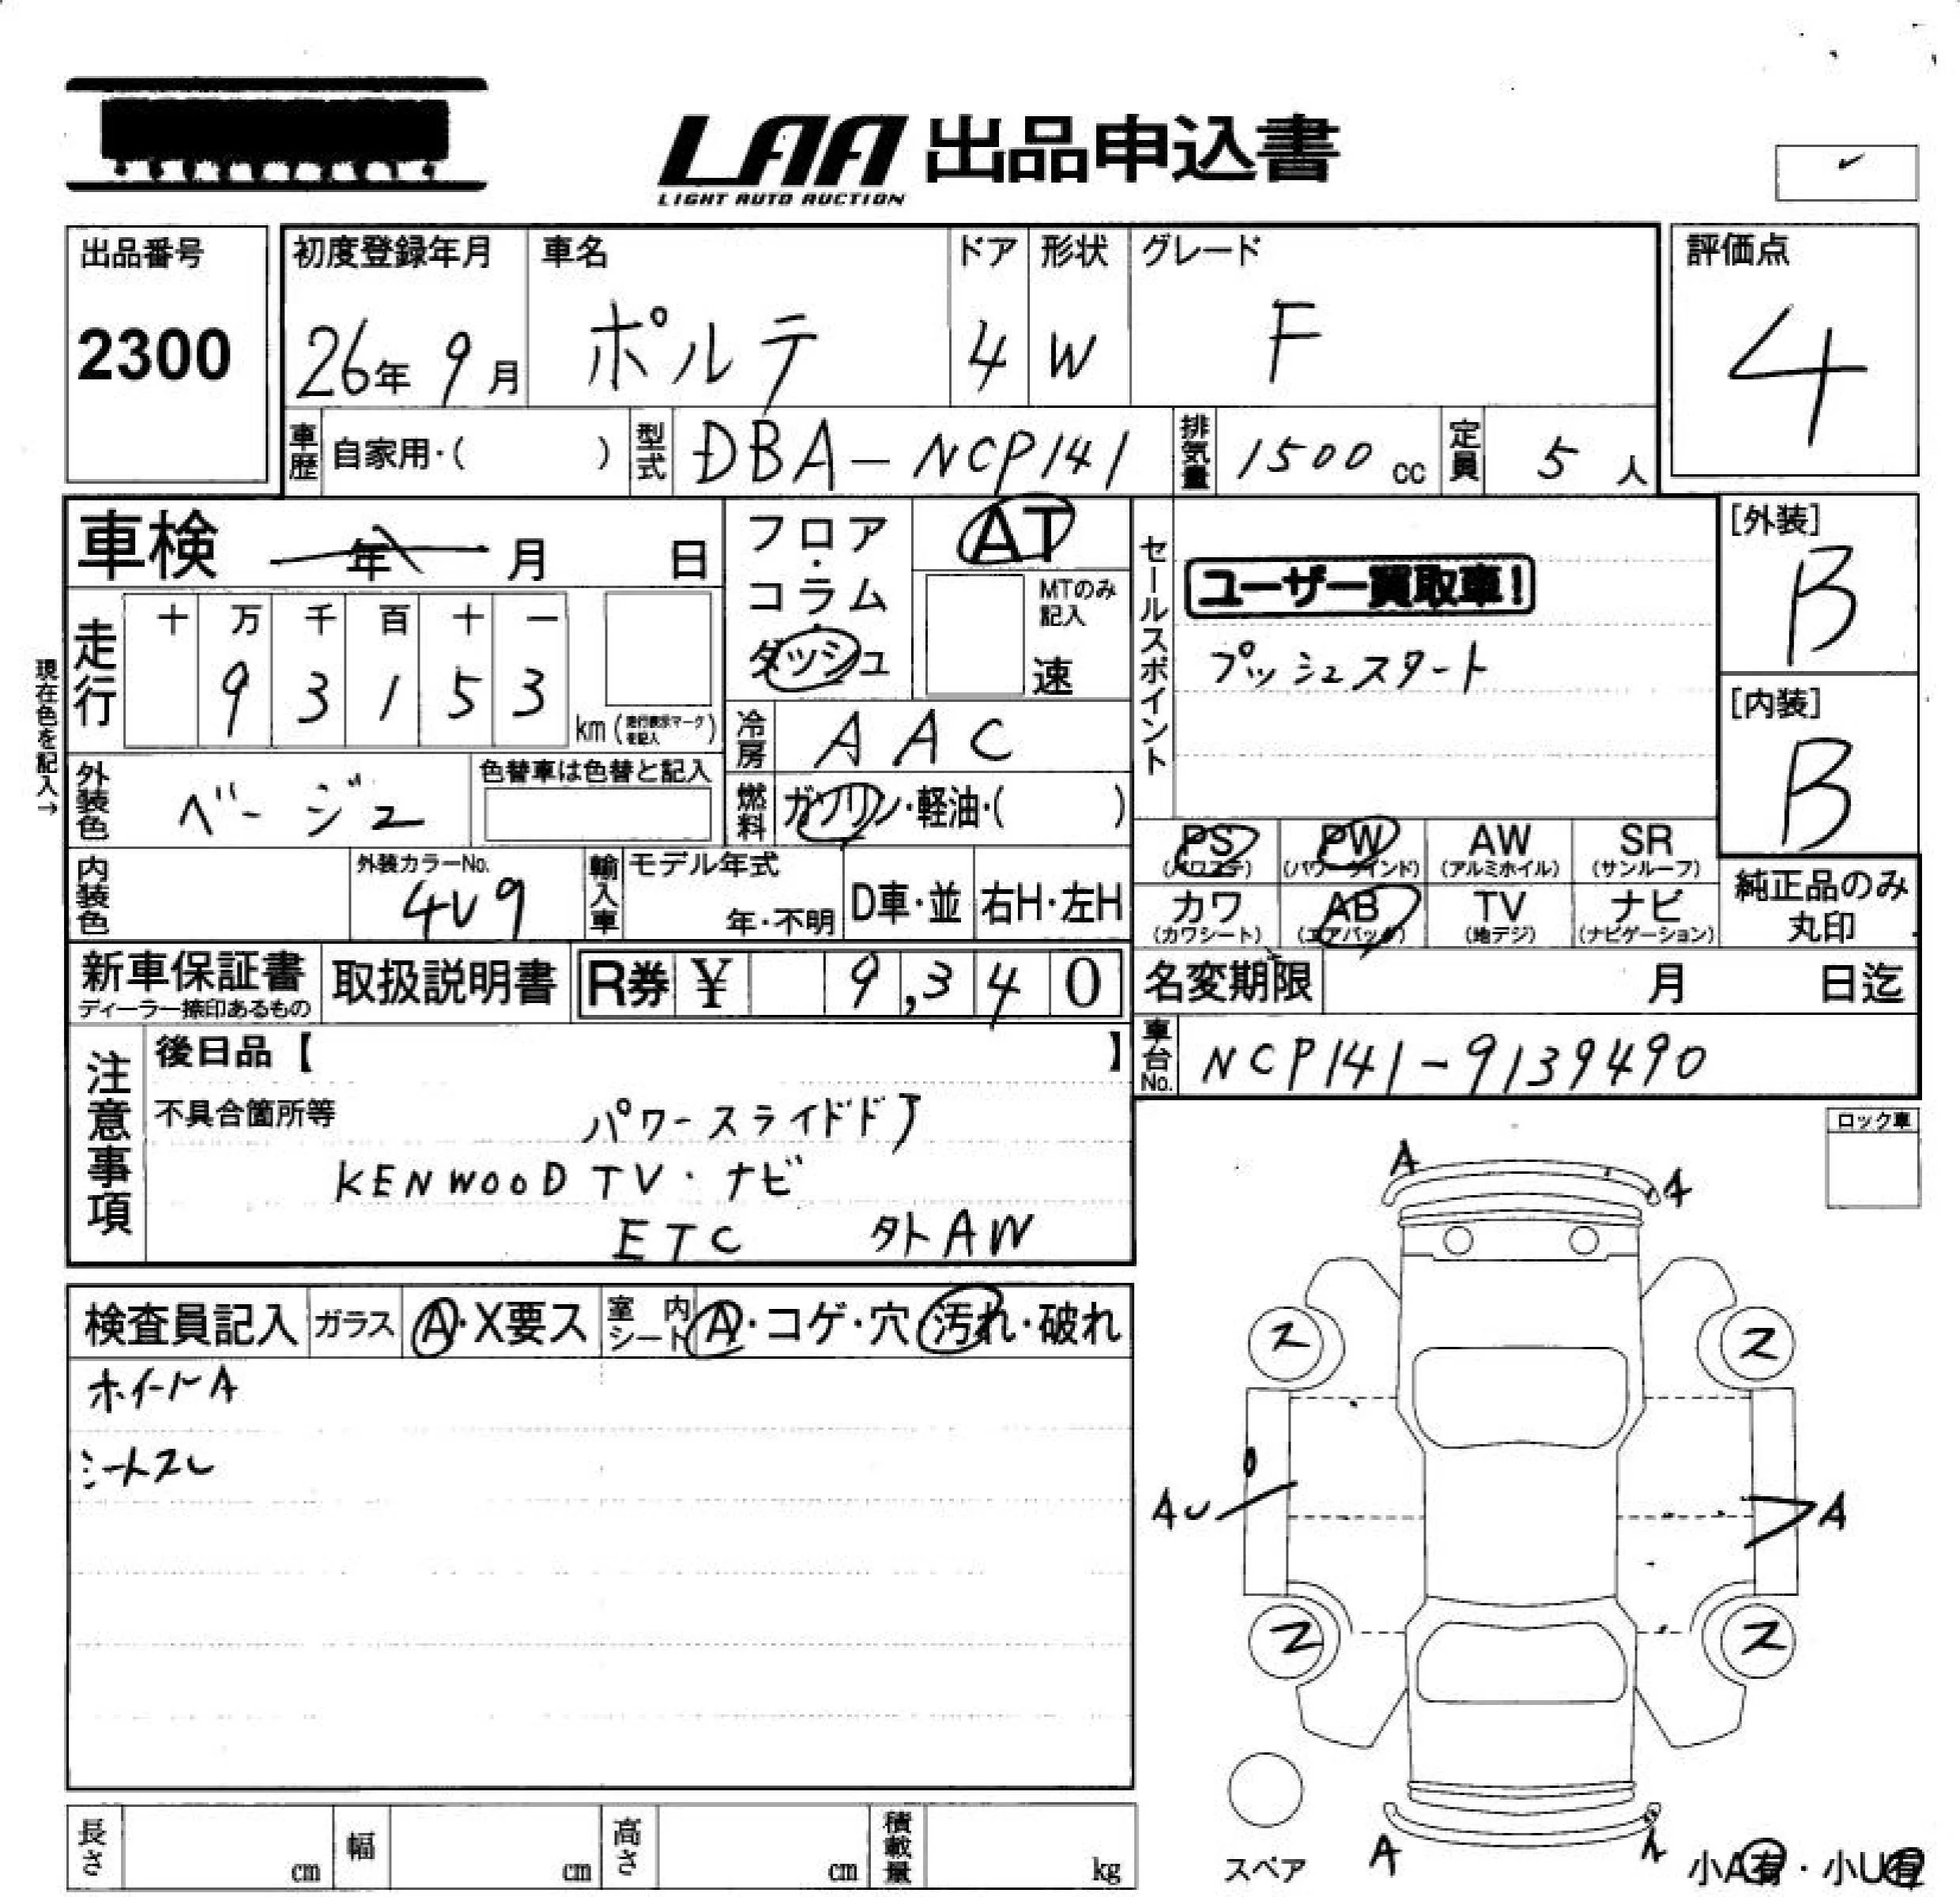 LAA 出品申込書
LIGHT AUTO AUCTION
出品番号
2300
初度登録年月
26年 9月
車名
ポルテ
ドア
4
形状
W
グレード
F
評価点
4
車歴 自家用・( )
型式 DBA-NCP141
排気量 1500 cc
定員 5 人
車検 年 月 日
走行 十 万 千 百 十 一
9 3 1 5 3
km (走行表示マークを記入)
現在色を記入→
フロア・コラム・ダッシュ
AT
MTのみ記入
速
冷房 AAC
燃料 ガソリン・軽油・( )
外装色 ベージュ
色替車は色替と記入
内装色
外装カラーNo.
4V9
輸入車 モデル年式
年・不明
D車・並
右H・左H
セールスポイント
ユーザー買取車!
プッシュスタート
[外装]
B
[内装]
B
PS (パワステ)
PW (パワーウインド)
AW (アルミホイル)
SR (サンルーフ)
カワ (カワシート)
AB (エアバック)
TV (地デジ)
ナビ (ナビゲーション)
純正品のみ
丸印
新車保証書
ディーラー捺印あるもの
取扱説明書
R券 ¥ 9,340
名変期限 月 日迄
車台No. NCP141-9139490
注意事項
後日品【 】
不具合箇所等
パワースライドドア
KENWOOD TV・ナビ
ETC 外AW
ロック車
検査員記入
ガラス A・X要ス
室内シート A・コゲ・穴・汚れ・破れ
ホイールA
シートスレ
A
A
ス
ス
AU
A
ス
ス
A
A
スペア
小A有・小U有
長さ cm
幅 cm
高さ cm
積載量 kg